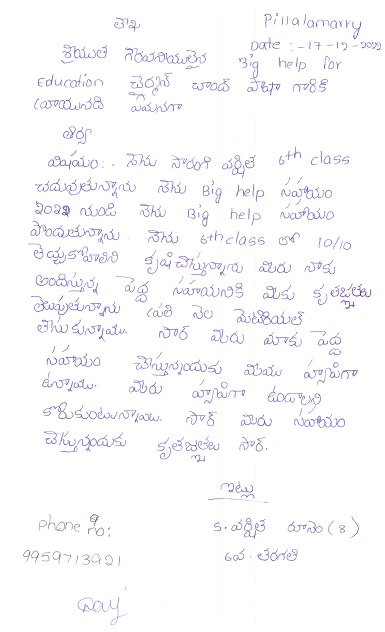 లేఖ
Pillalamarry
Date : -17-12-2022
శ్రీయుత గౌరవనీయులైన Big help for
Education చైర్మన్ చాంద్ పాషా గారికి
వ్రాయునది ఏమనగా
విషయం: . నేను సారంగి వర్షిత 6th class
చదువుతున్నాను నేను Big help సహాయం
2022 నుండి నేను Big help సహాయం
పొందుతున్నాను. నేను 6th class లో 10/10
తెచ్చుకోవాలని కృషి చేస్తున్నాను మీరు నాకు
అందిస్తున్న పెద్ద సహాయనికి మీకు కృతజ్ఞతలు
తెలుపుతున్నాను ప్రతి నెల మెటిరియల్
తీసుకున్నాము. సార్ మీరు మాకు పెద్ద
సహాయం చేస్తున్నందుకు మేము హ్యపీగా
ఉన్నాము. మీరు హ్యపీగా ఉండాలని
కోరుకుంటున్నాము. సార్ మీరు సహాయం
చేస్తున్నందుకు కృతజ్ఞతలు సార్.
ఇట్లు
Phone no:
S. వర్షిత (8)
9959713921
6వ. తరగతి